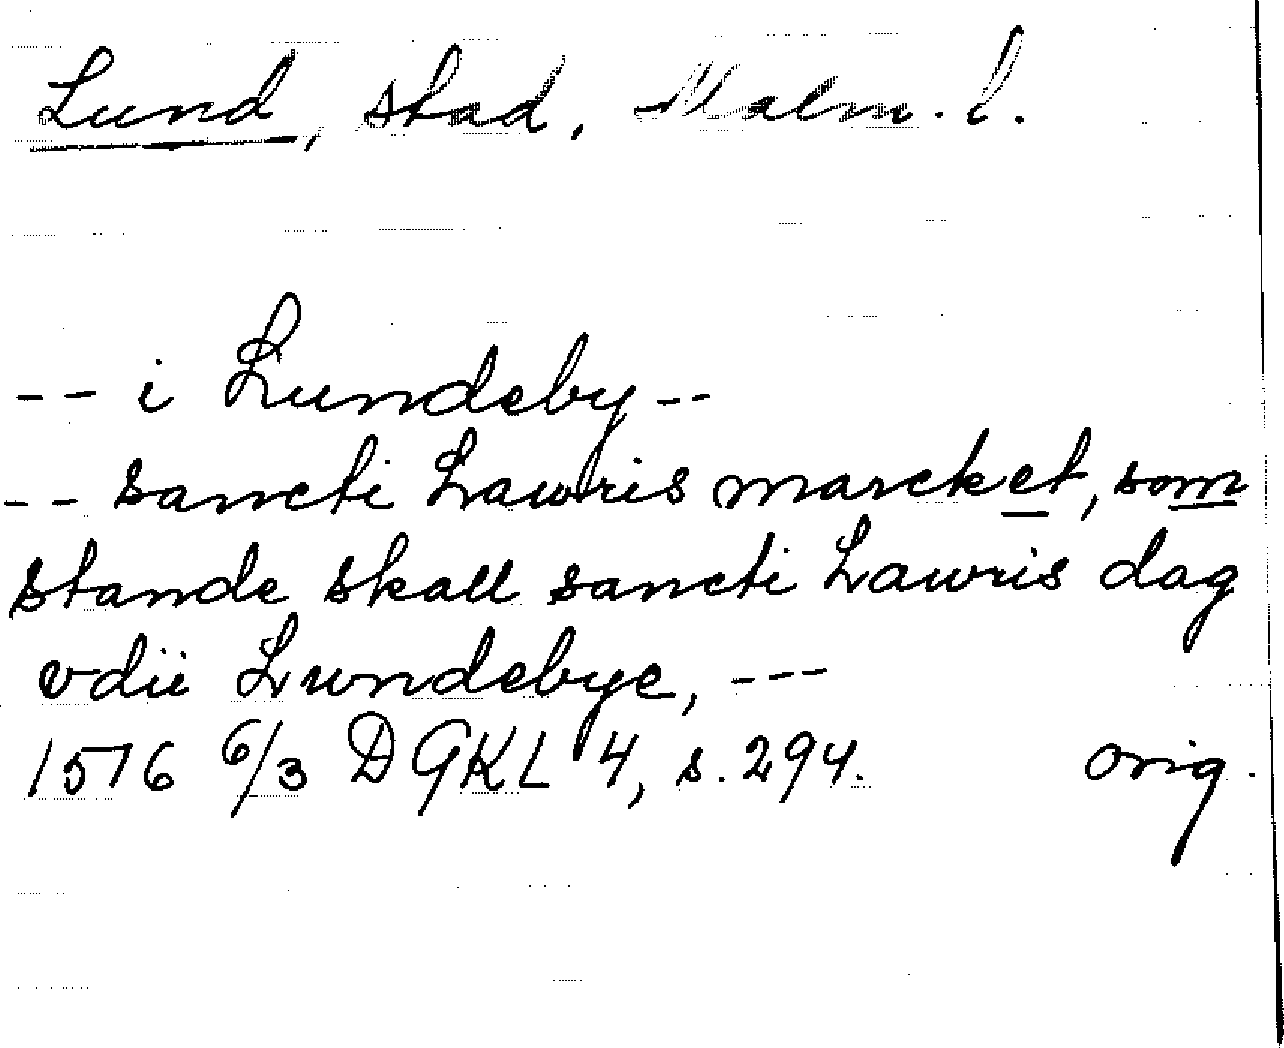 Lund, stad, Malm. l.
-- i Lundeby --
-- sancti Lawris marcket, som
stande skall sancti Lawris dag
vdii Lwndebye, ---
1576 6/3 DGKL 4, s. 294. orig.